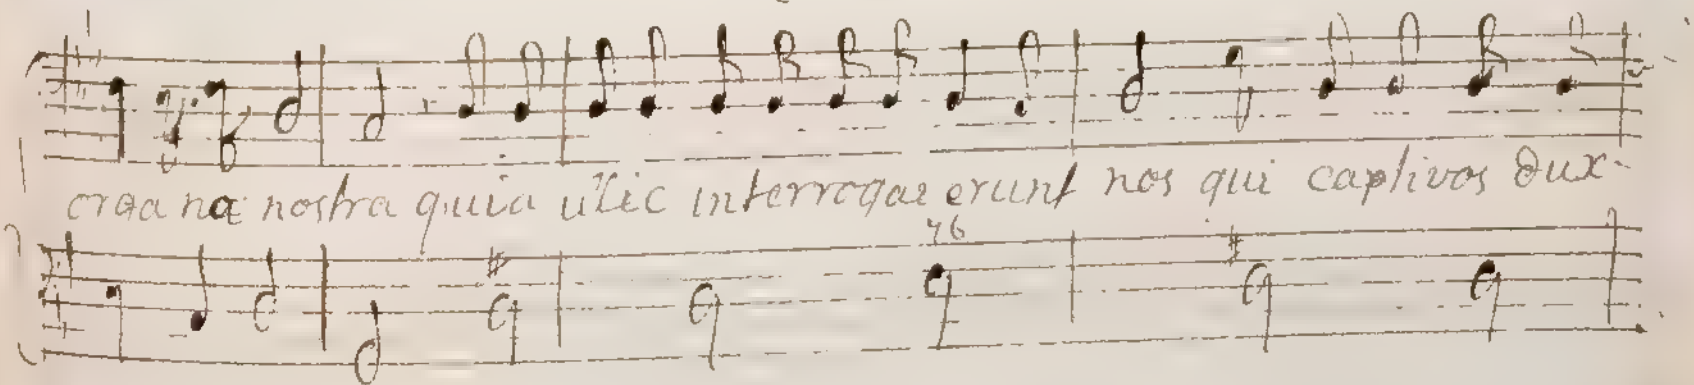 orga na nostra quia illic interrogaverunt nos qui captivos dux-
76